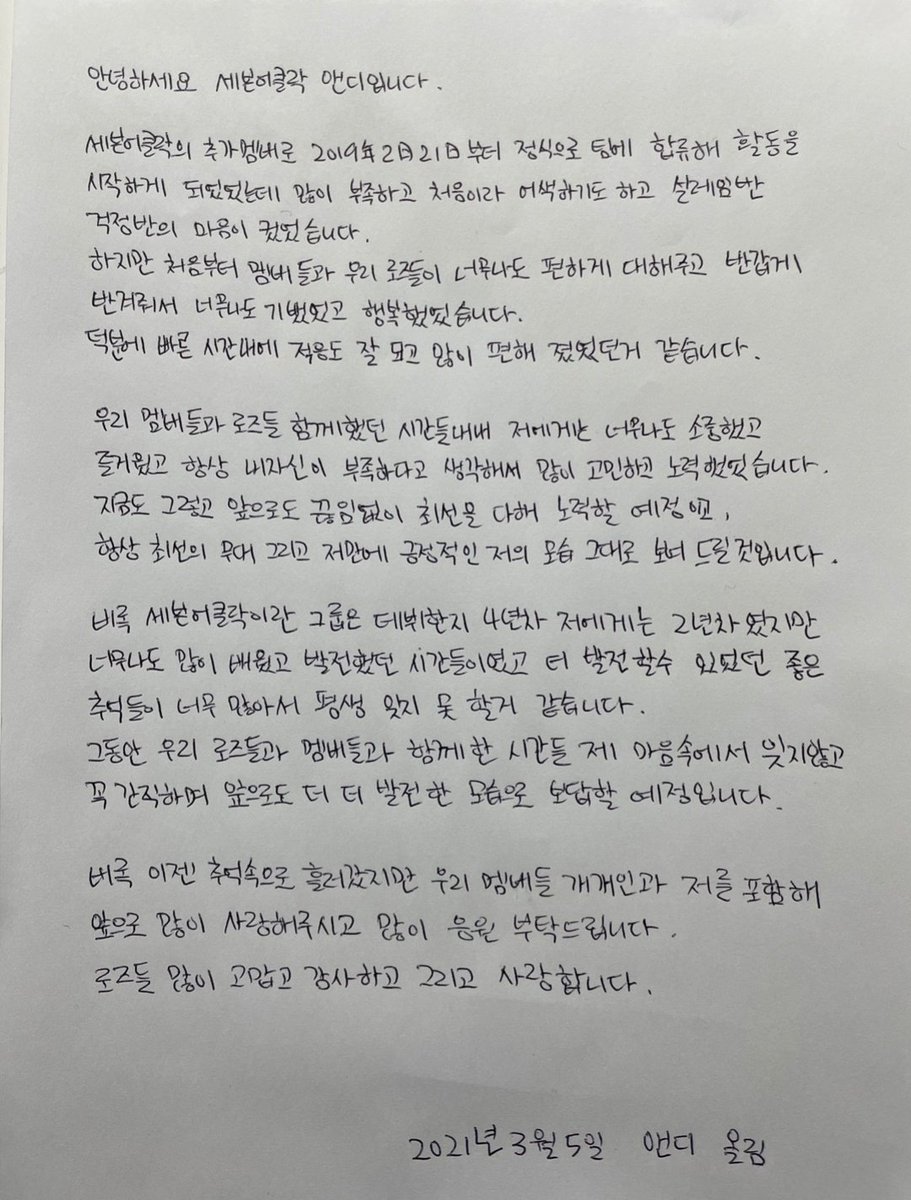 안녕하세요 세븐어클락 앤디입니다.
세븐어클락의 추가멤버로 2019年2日21日부터 정식으로 팀에 합류해 활동을
시작하게 되었었는데 많이 부족하고 처음이라 어색하기도 하고 설레임반
걱정반의 마음이 컸었습니다.
하지만 처음부터 멤버들과 우리 로즈들이 너무나도 편하게 대해주고 반갑게
반겨줘서 너무나도 기뻤었고 행복했었습니다.
덕분에 빠른 시간내에 적응도 잘 되고 많이 편해 졌었던거 같습니다.
우리 멤버들과 로즈들 함께했던 시간들내내 저에게는 너무나도 소중했고
즐거웠고 항상 내자신이 부족하다고 생각해서 많이 고민하고 노력했었습니다.
지금도 그렇고 앞으로도 끊임없이 최선을 다해 노력할 예정이고,
항상 최선의 무대 그리고 저만에 긍정적인 저의 모습 그대로 보여 드릴것입니다.
비록 세븐어클락이란 그룹은 데뷔한지 4년차 저에게는 2년차였지만
너무나도 많이 배웠고 발전했던 시간들이였고 더 발전할수 있었던 좋은
추억들이 너무 많아서 평생 잊지 못 할거 같습니다.
그동안 우리 로즈들과 멤버들과 함께한 시간들 제 마음속에서 잊지않고
꼭 간직하며 앞으로도 더 더 발전한 모습으로 보답할 예정입니다.
비록 이젠 추억속으로 흘러갔지만 우리 멤버들 개개인과 저를 포함해
앞으로 많이 사랑해주시고 많이 응원 부탁드립니다.
로즈들 많이 고맙고 감사하고 그리고 사랑합니다.
2021년 3월 5일 앤디 올림